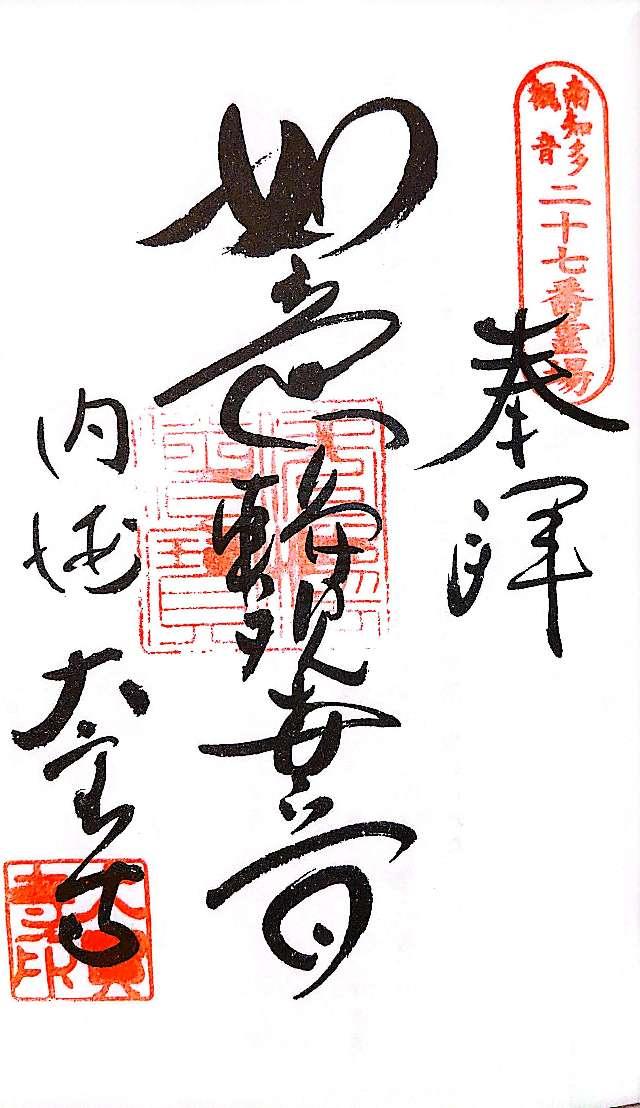 南知多
観音
二十七番霊場
奉拝
如意輪観世音
内海 大宝寺